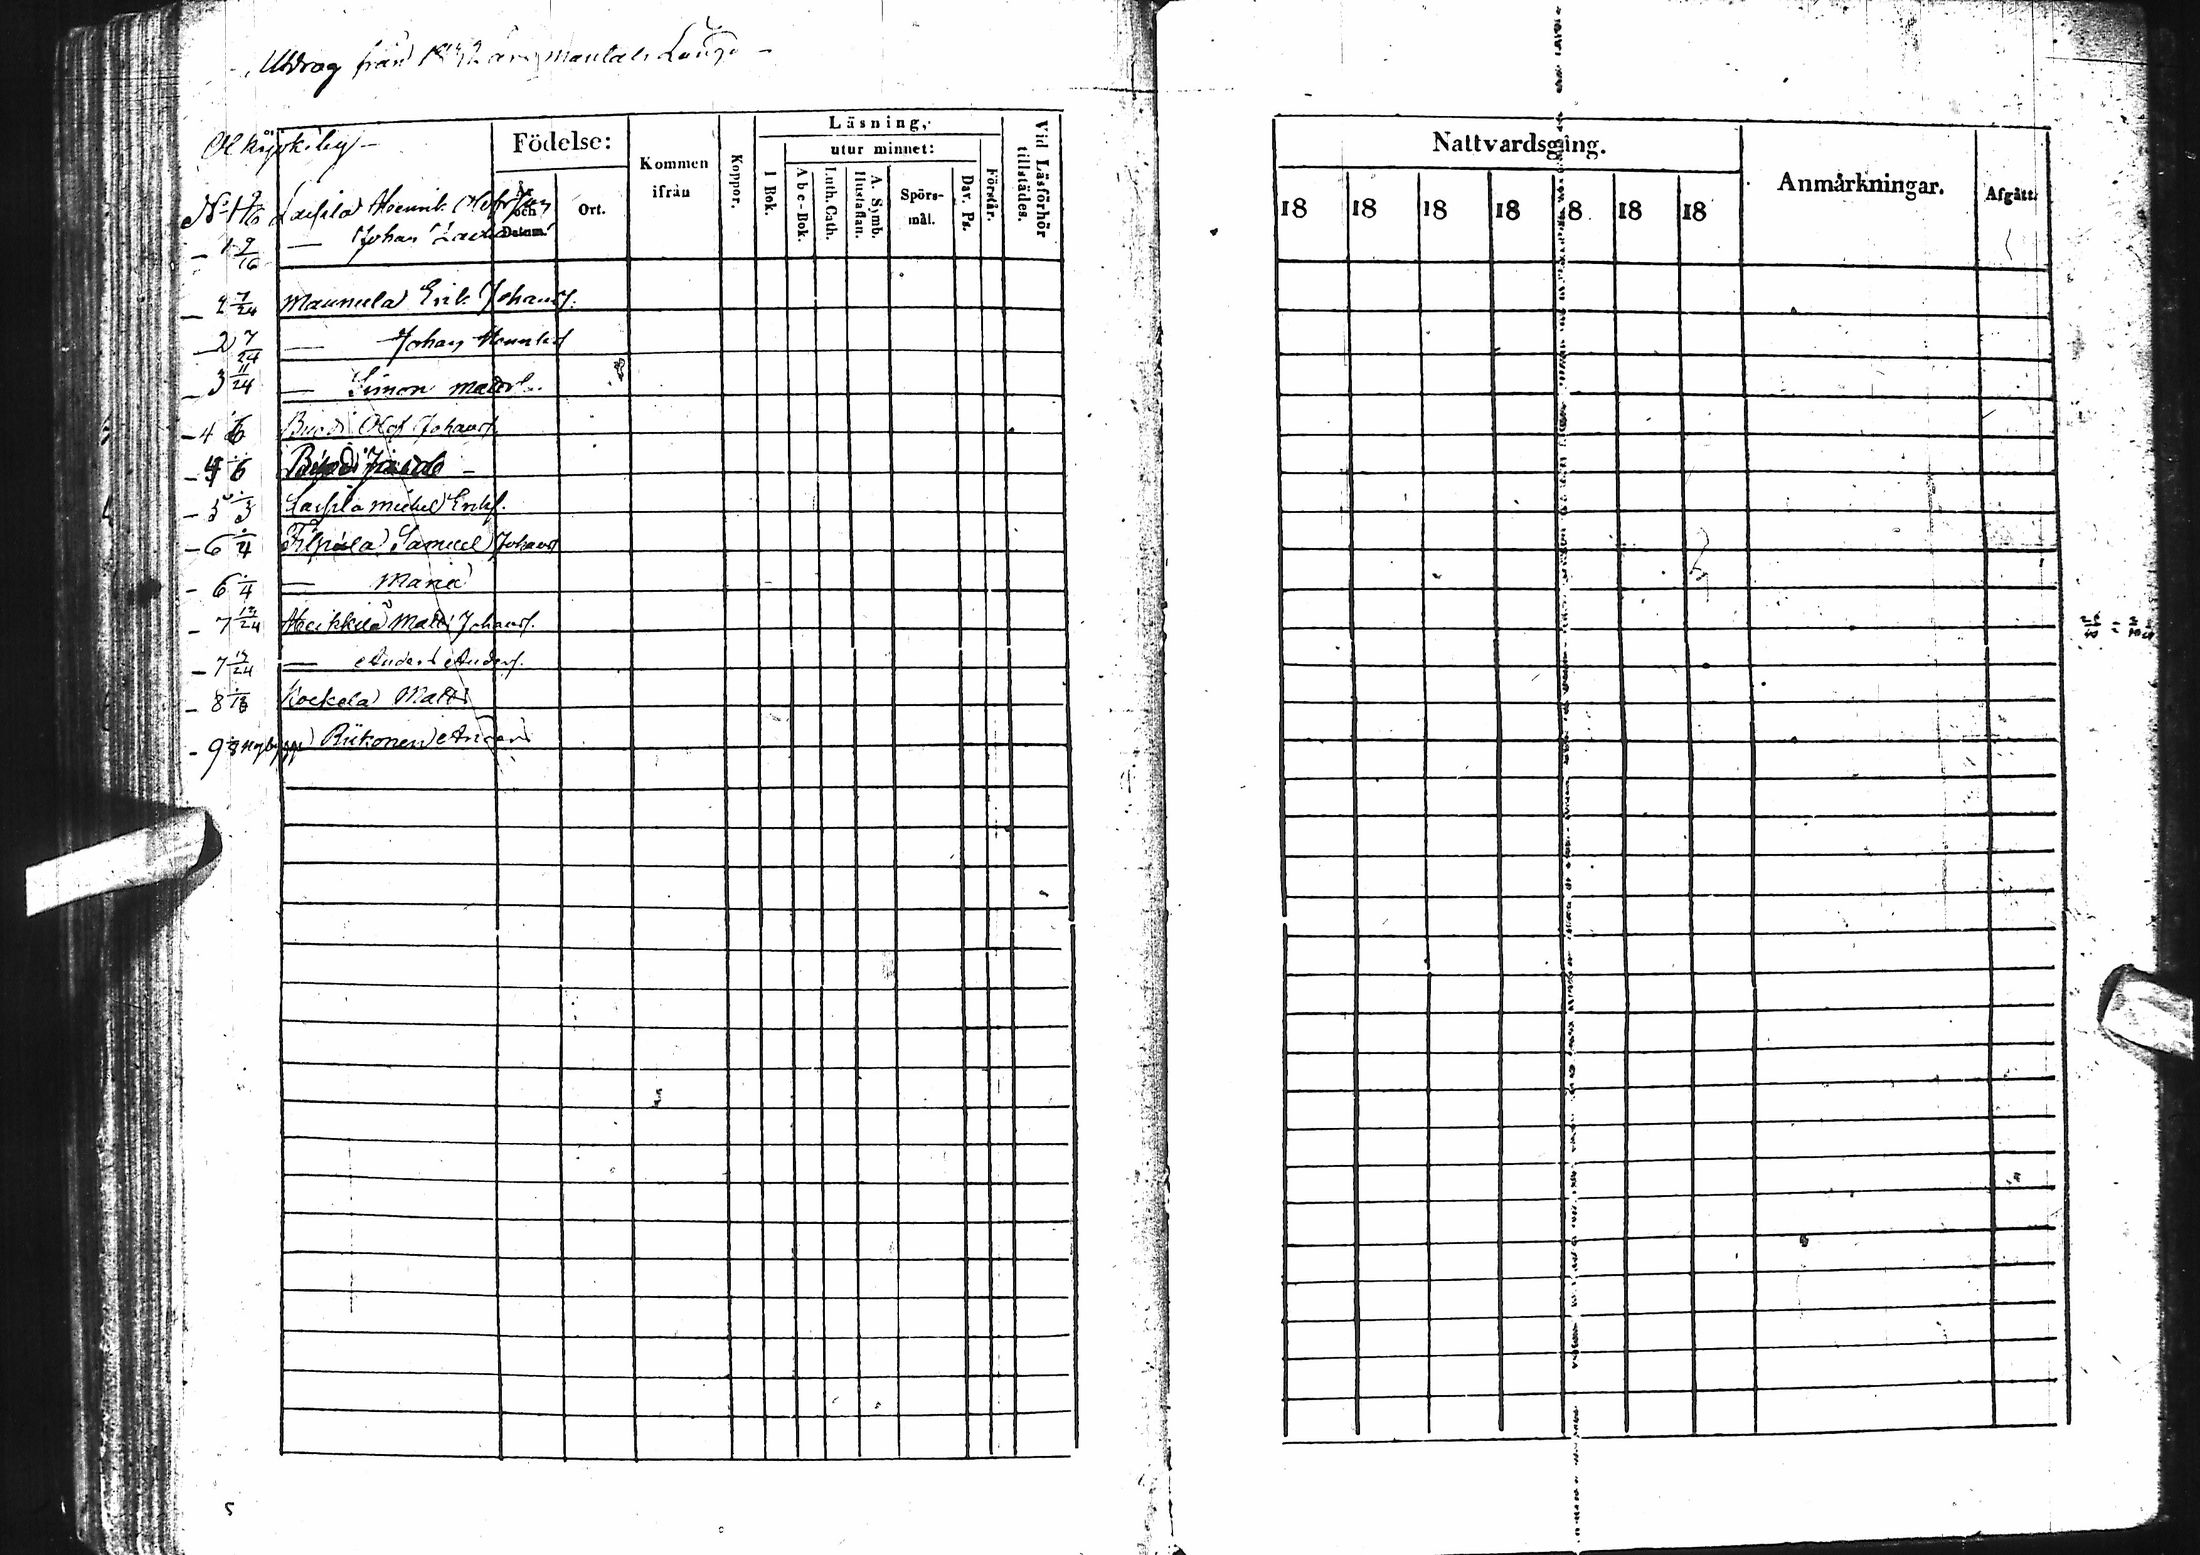 Utdrag från 1842 års mantals Längd -
Olkijoki by -
Födelse:
År och Datum.
Ort.
Kommen ifrån
Koppor.
Läsning,
utur minnet:
I Bok.
Abc-Bok.
Luth. Cath.
A. Symb. Hustaflan.
Spörs-mål.
Dav. Ps.
Förstår.
Vid Läsförhör tillstädes.
No 1 9/16 Laspila Henrik Olofsson
- 1 9/16 — Johan
- 2 7/24 Maunula Erik Johans.
- 2 7/24 — Johan Henriks
- 3 11/24 — Simon Matts.
- 4 1/6 Olof Johans.
- 4 1/6 Jacob -
- 5 1/3 Laspila Michel Eriks.
- 6 1/4 Filpula Samuel Johans
- 6 1/4 — Maria
- 7 13/24 Heikkilä Matts Johans.
- 7 13/24 — Anders Anders.
- 8 Kockela Matts
- 9 1/8 Nybygge Riikonen Anders
5
Nattvardsgång.
18 18 18 18 18 18 18
Anmärkningar.
Afgått.